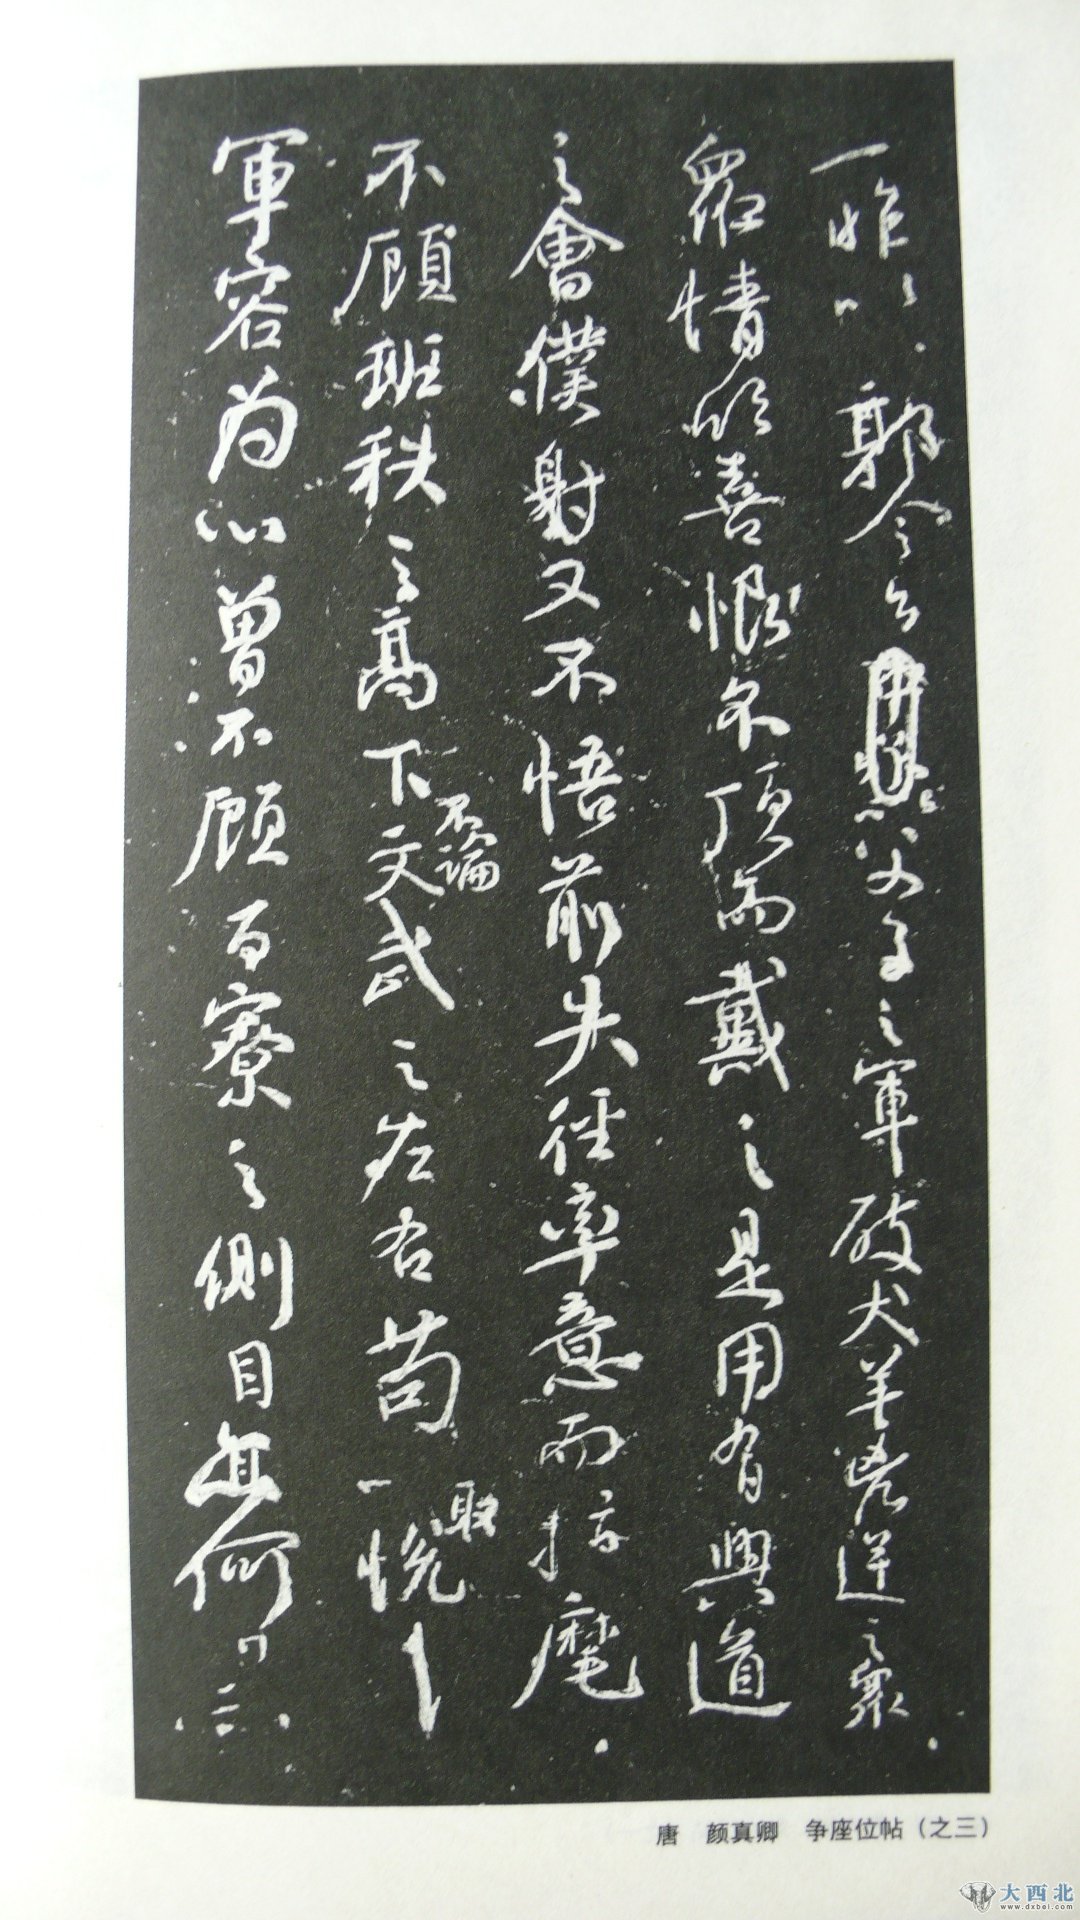 一昨以郭令公以父子之軍破犬羊兇逆之衆
衆情欣喜恨不頂而戴之是用有興道
之會僕射又不悟前失徑率意而指麾
不顧班秩之高下不論文武之左右苟以取悅
軍容為心曾不顧百寮之側目亦何
唐 颜真卿 争座位帖（之三）
大西北
www.dxbei.com